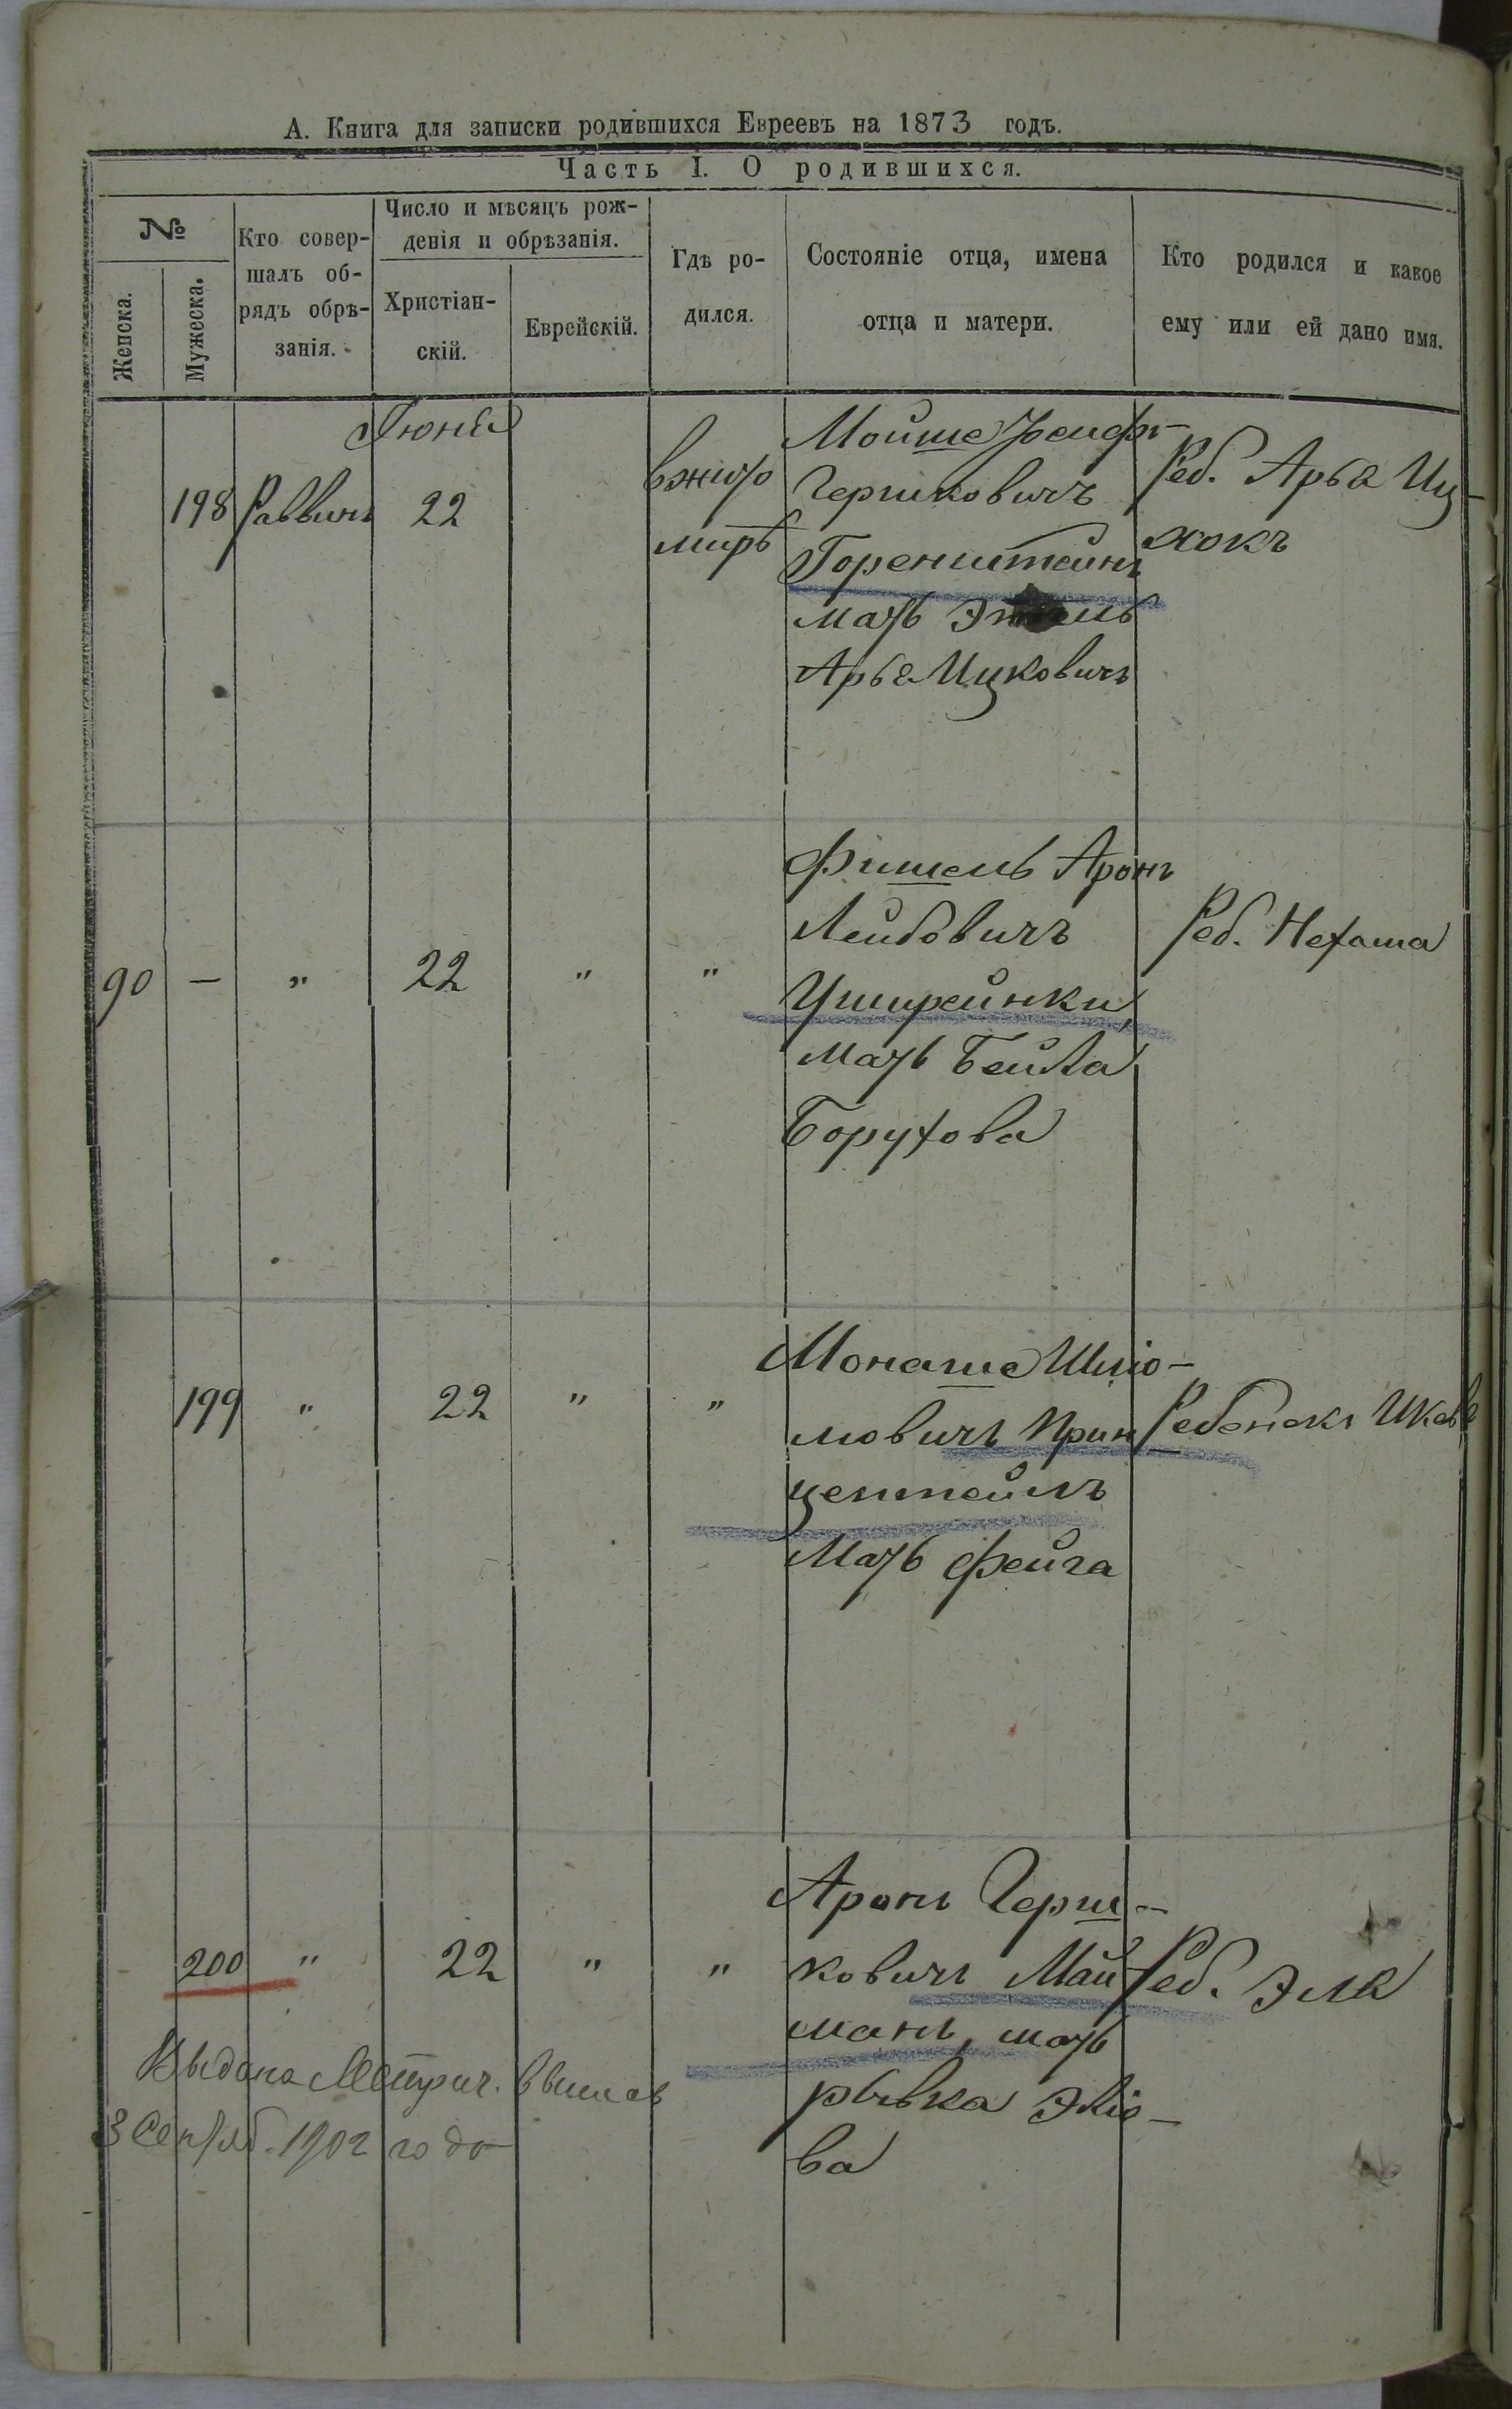 А. Книга для записки родившихся Евреевъ на 1873 годъ.
Часть I. О родившихся.
№
Женска.
Мужеска.
Кто совер-
шалъ об-
рядъ обрѣ-
занія.
Число и мѣсяцъ рож-
денія и обрѣзанія.
Христіан-
скій.
Еврейскій.
Гдѣ ро-
дился.
Состояніе отца, имена
отца и матери.
Кто родился и какое
ему или ей дано имя.
Іюня
198 Раввинъ 22
в Жито
мирѣ
Мойше
Гершковичъ
Горенштейнъ
мать
Арье Ицковичъ
Реб. Арье Иц-
хокъ
90 — " 22 " "
Фишель Аронъ
Лейбовичъ
мать Бейла
Борухова
Реб. Нехама
199 " 22 " "
Монаше Шліо-
мовичъ Прин
мать Фейга
Ребенокъ
200 " 22 " "
Аронъ Герш-
ковичъ Май
манъ, мать
Рывка
ва
Реб. Эля
Выдана Метрич.
3 Сентяб. 1902 года